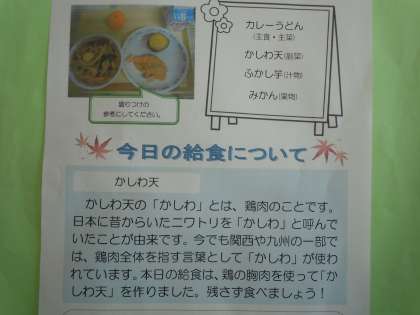 カレーうどん
(主食・主菜)
かしわ天(副菜)
ふかし芋(汁物)
みかん(果物)
盛りつけの
参考にしてください。
今日の給食について
かしわ天
かしわ天の「かしわ」とは、鶏肉のことです。
日本に昔からいたニワトリを「かしわ」と呼んで
いたことが由来です。今でも関西や九州の一部で
は、鶏肉全体を指す言葉として「かしわ」が使わ
れています。本日の給食は、鶏の胸肉を使って「か
しわ天」を作りました。残さず食べましょう！